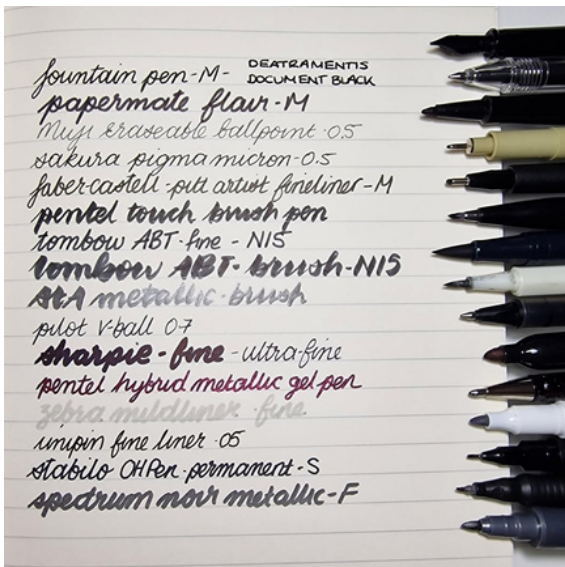 fountain pen-M- DEATRAMENTIS DOCUMENT BLACK
papermate flair-M
Muji Eraseable ballpoint ·0.5
sakura pigma micron-0.5
faber-castell-pitt artist fineliner-M
pentel touch brush pen
tombow ABT-fine - N15
tombow ABT-brush-N15
StA metallic-brush
pilot V-ball 07
sharpie-fine - ultra-fine
pentel hybrid metallic gel pen
zebra mildliner ·fine
unipin fine liner ·05
stabilo OHPen-permanant-S
spectrum noir metallic-F